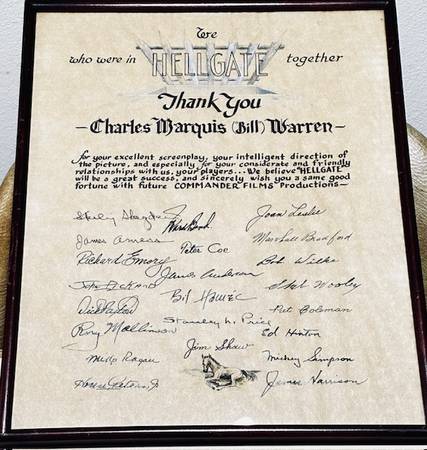 We
who were in HELLGATE together
Thank You
— Charles Marquis (Bill) Warren —
for your excellent screenplay, your intelligent direction of
the picture, and especially for your considerate and friendly
relationships with us, your players... We believe "HELLGATE"
will be a great success, and sincerely wish you a same good
fortune with future COMMANDER FILMS Productions —
Joan Leslie
James Arness Peter Coe Marshall Bradford
Richard Emory James Anderson Bob Wilke
Sheb Wooley
Pat Coleman
Rory Mallinson Stanley Price Ed Hinton
Jim Shaw Mickey Simpson
James Harrison